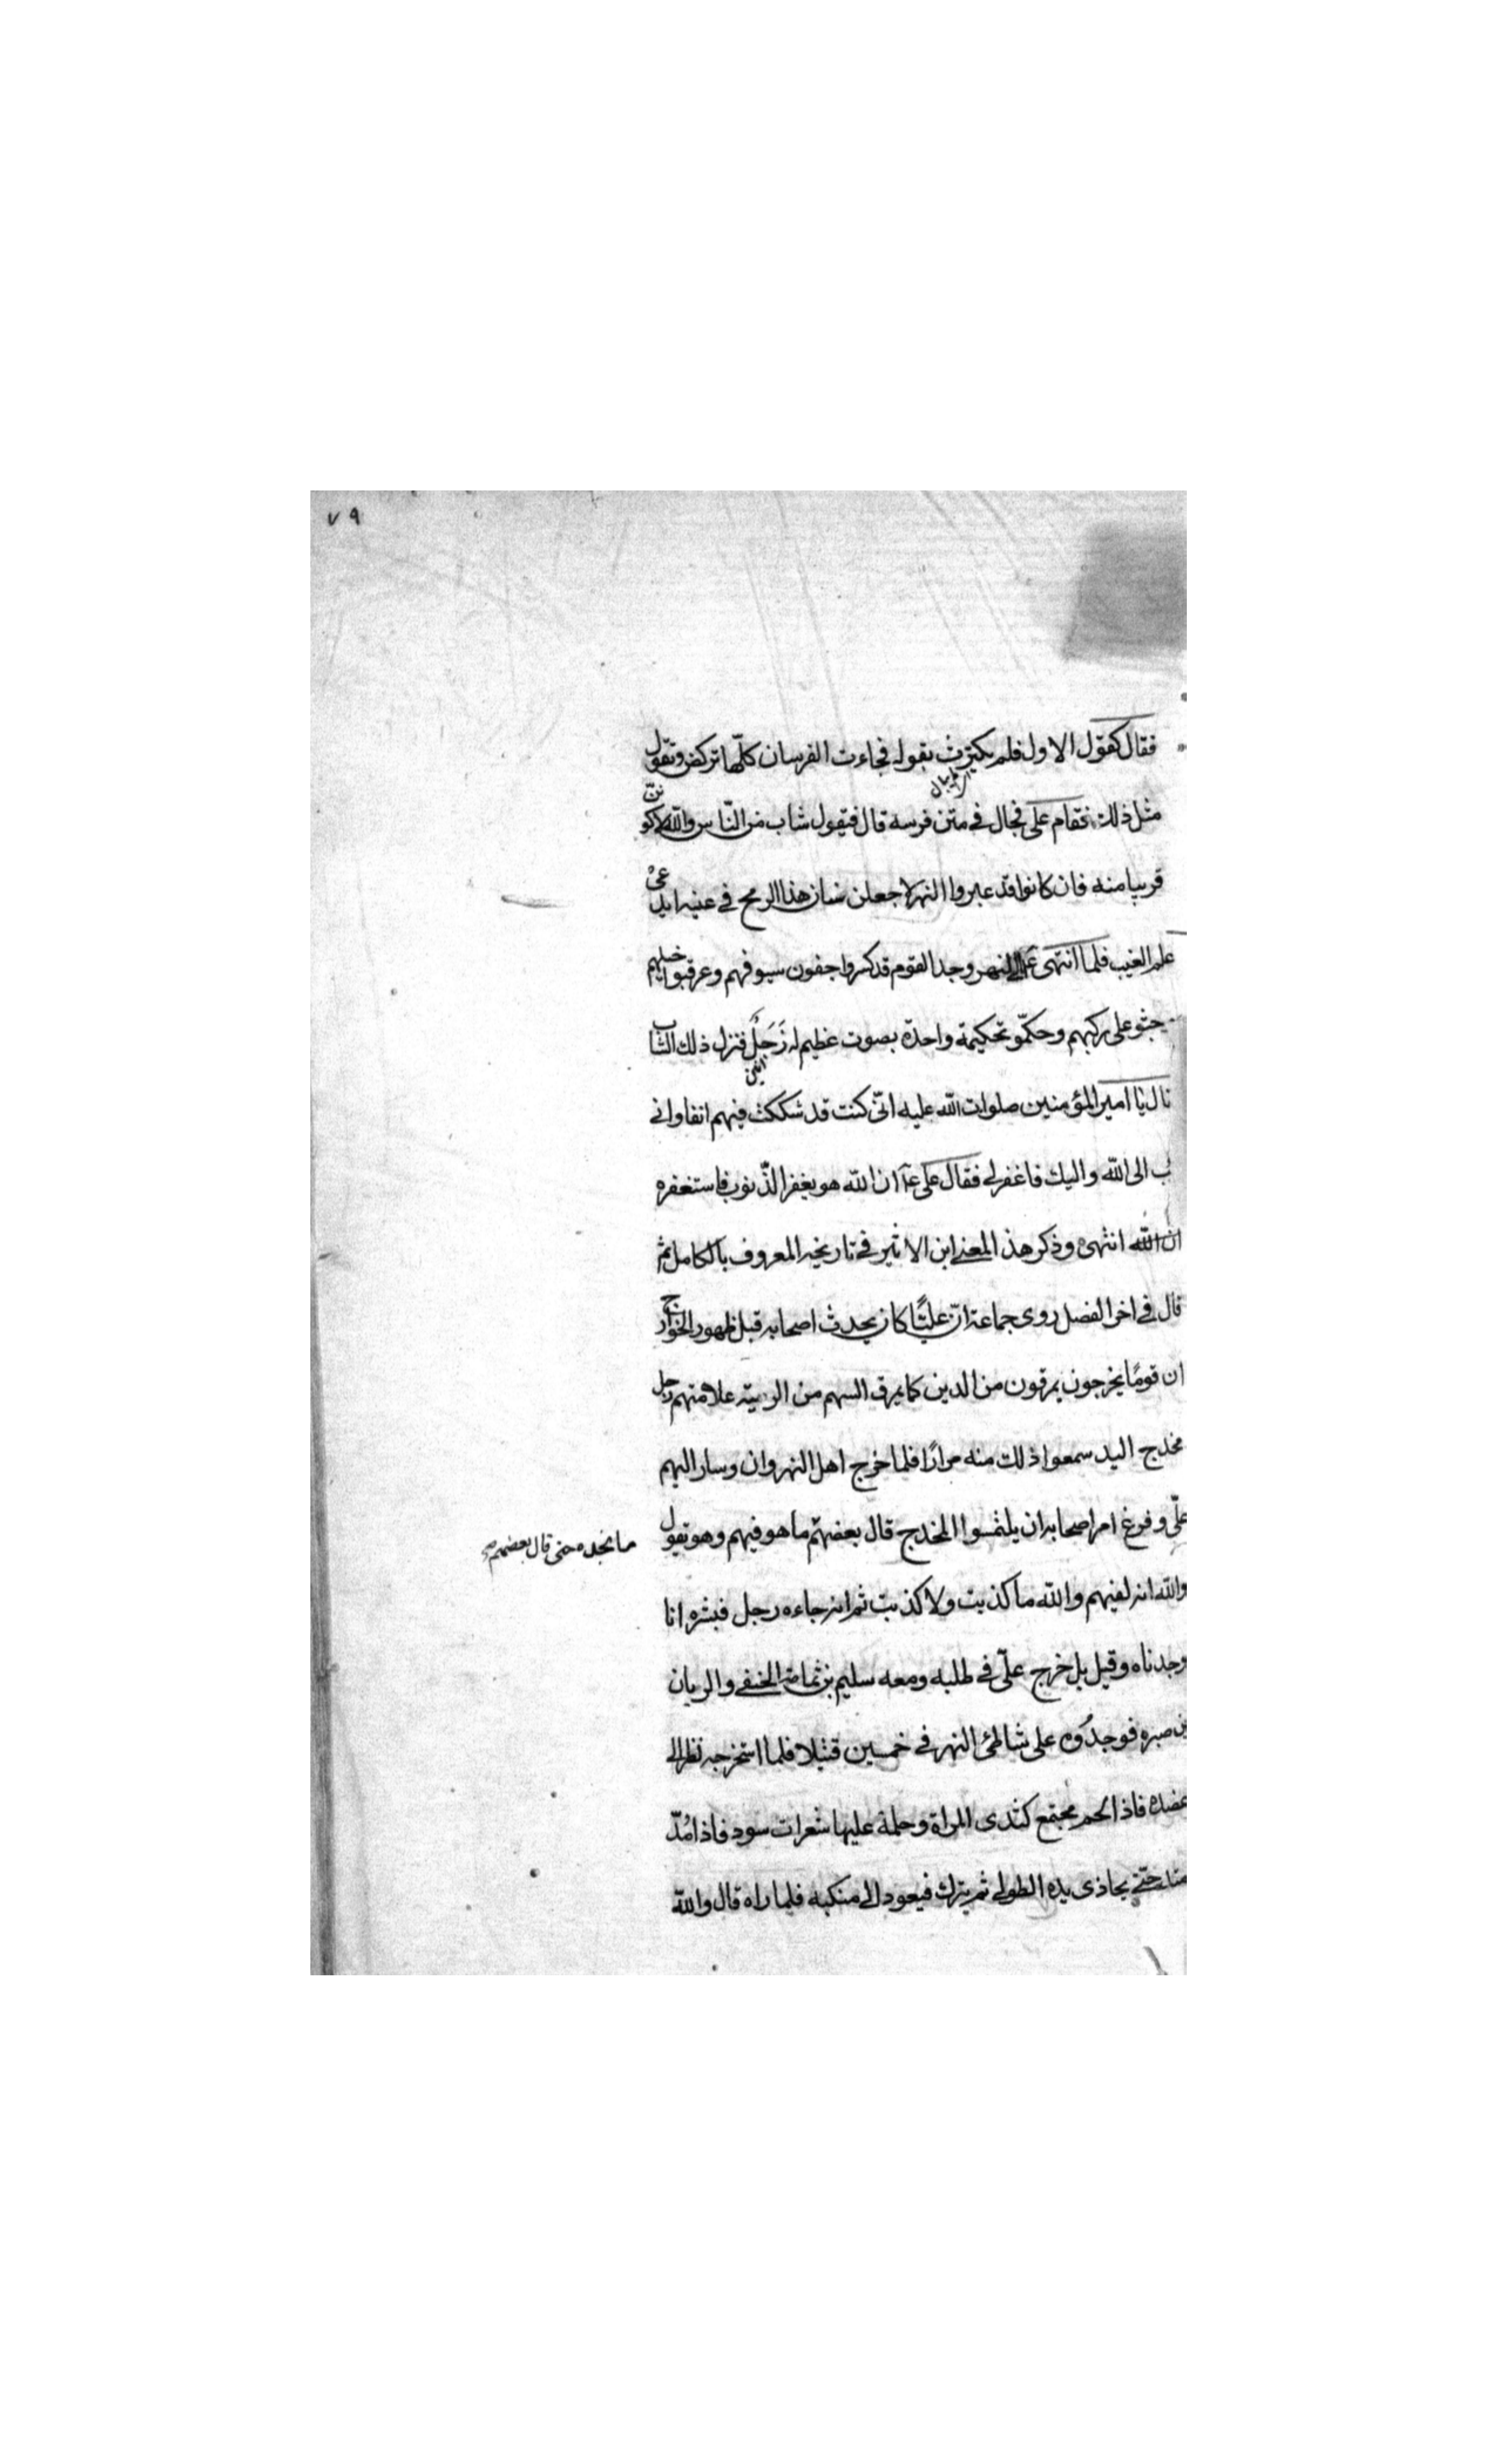 ٧٩
فقال كقول الاول فلم يكترث بقوله فجاءت الفرسان كلّها تركض وتقول
مثل ذلك فقام على فجال في متن فرسه قال فيقول شاب من النّاس والله لاكونن
قريبا منه فان كانوا قد عبروا النهر لاجعلن سنان هذا الرمح في عينه ايدعى
علم الغيب فلما انتهى النهر وجد القوم قد كسروا جفون سيوفهم وعرقبوا خيلهم
جثو على ركبهم وحكمّو تحكيمة واحدة بصوت عظيم له زَجَلٌ فنزل ذلك الشاب
قال يا امير المؤمنين صلوات الله عليه انّى كنت قد شككت فيهم انفا وانى
الى الله واليك فاغفر لى فقال على ان الله هو يغفر الذّنوب فاستغفره
ان الله انتهى وذكر هذ المعنى ابن الاثير في تاريخه المعروف بالكامل ثم
قال في اخر الفصل روى جماعة انّ عليًّا كان يحدث اصحابه قبل ظهور الخوارج
ان قومًا يخرجون يمرقون من الدين كما يمرق السهم من الرميّة علامتهم رجل
مخدج اليد سمعوا ذلك منه مرارًا فلما خرج اهل النهروان وسار اليهم
علّى وفرغ امر اصحابه ان يلتمسوا المخدج قال بعضهم ما هو فيهم وهو يقول
ما نجده حتى قال بعضهم
والله انه لفيهم والله ما كذبت ولا كذبت ثم انه جاءه رجل فبشره انا
وجدناه وقيل بل خرج علىّ في طلبه ومعه سليم بن ثمامة الحنفى والريان
بن صبره فوجدوه على شاطئ النهر في خمسين قتيلا فلما استخرجه نظر الى
عضده فاذا لحم مجتمع كثدى المراة وحلمة عليها شعرات سود فاذا مُدّ
حتّى يحاذى يده الطولى ثم يترك فيعود الى منكبه فلما راه قال والله